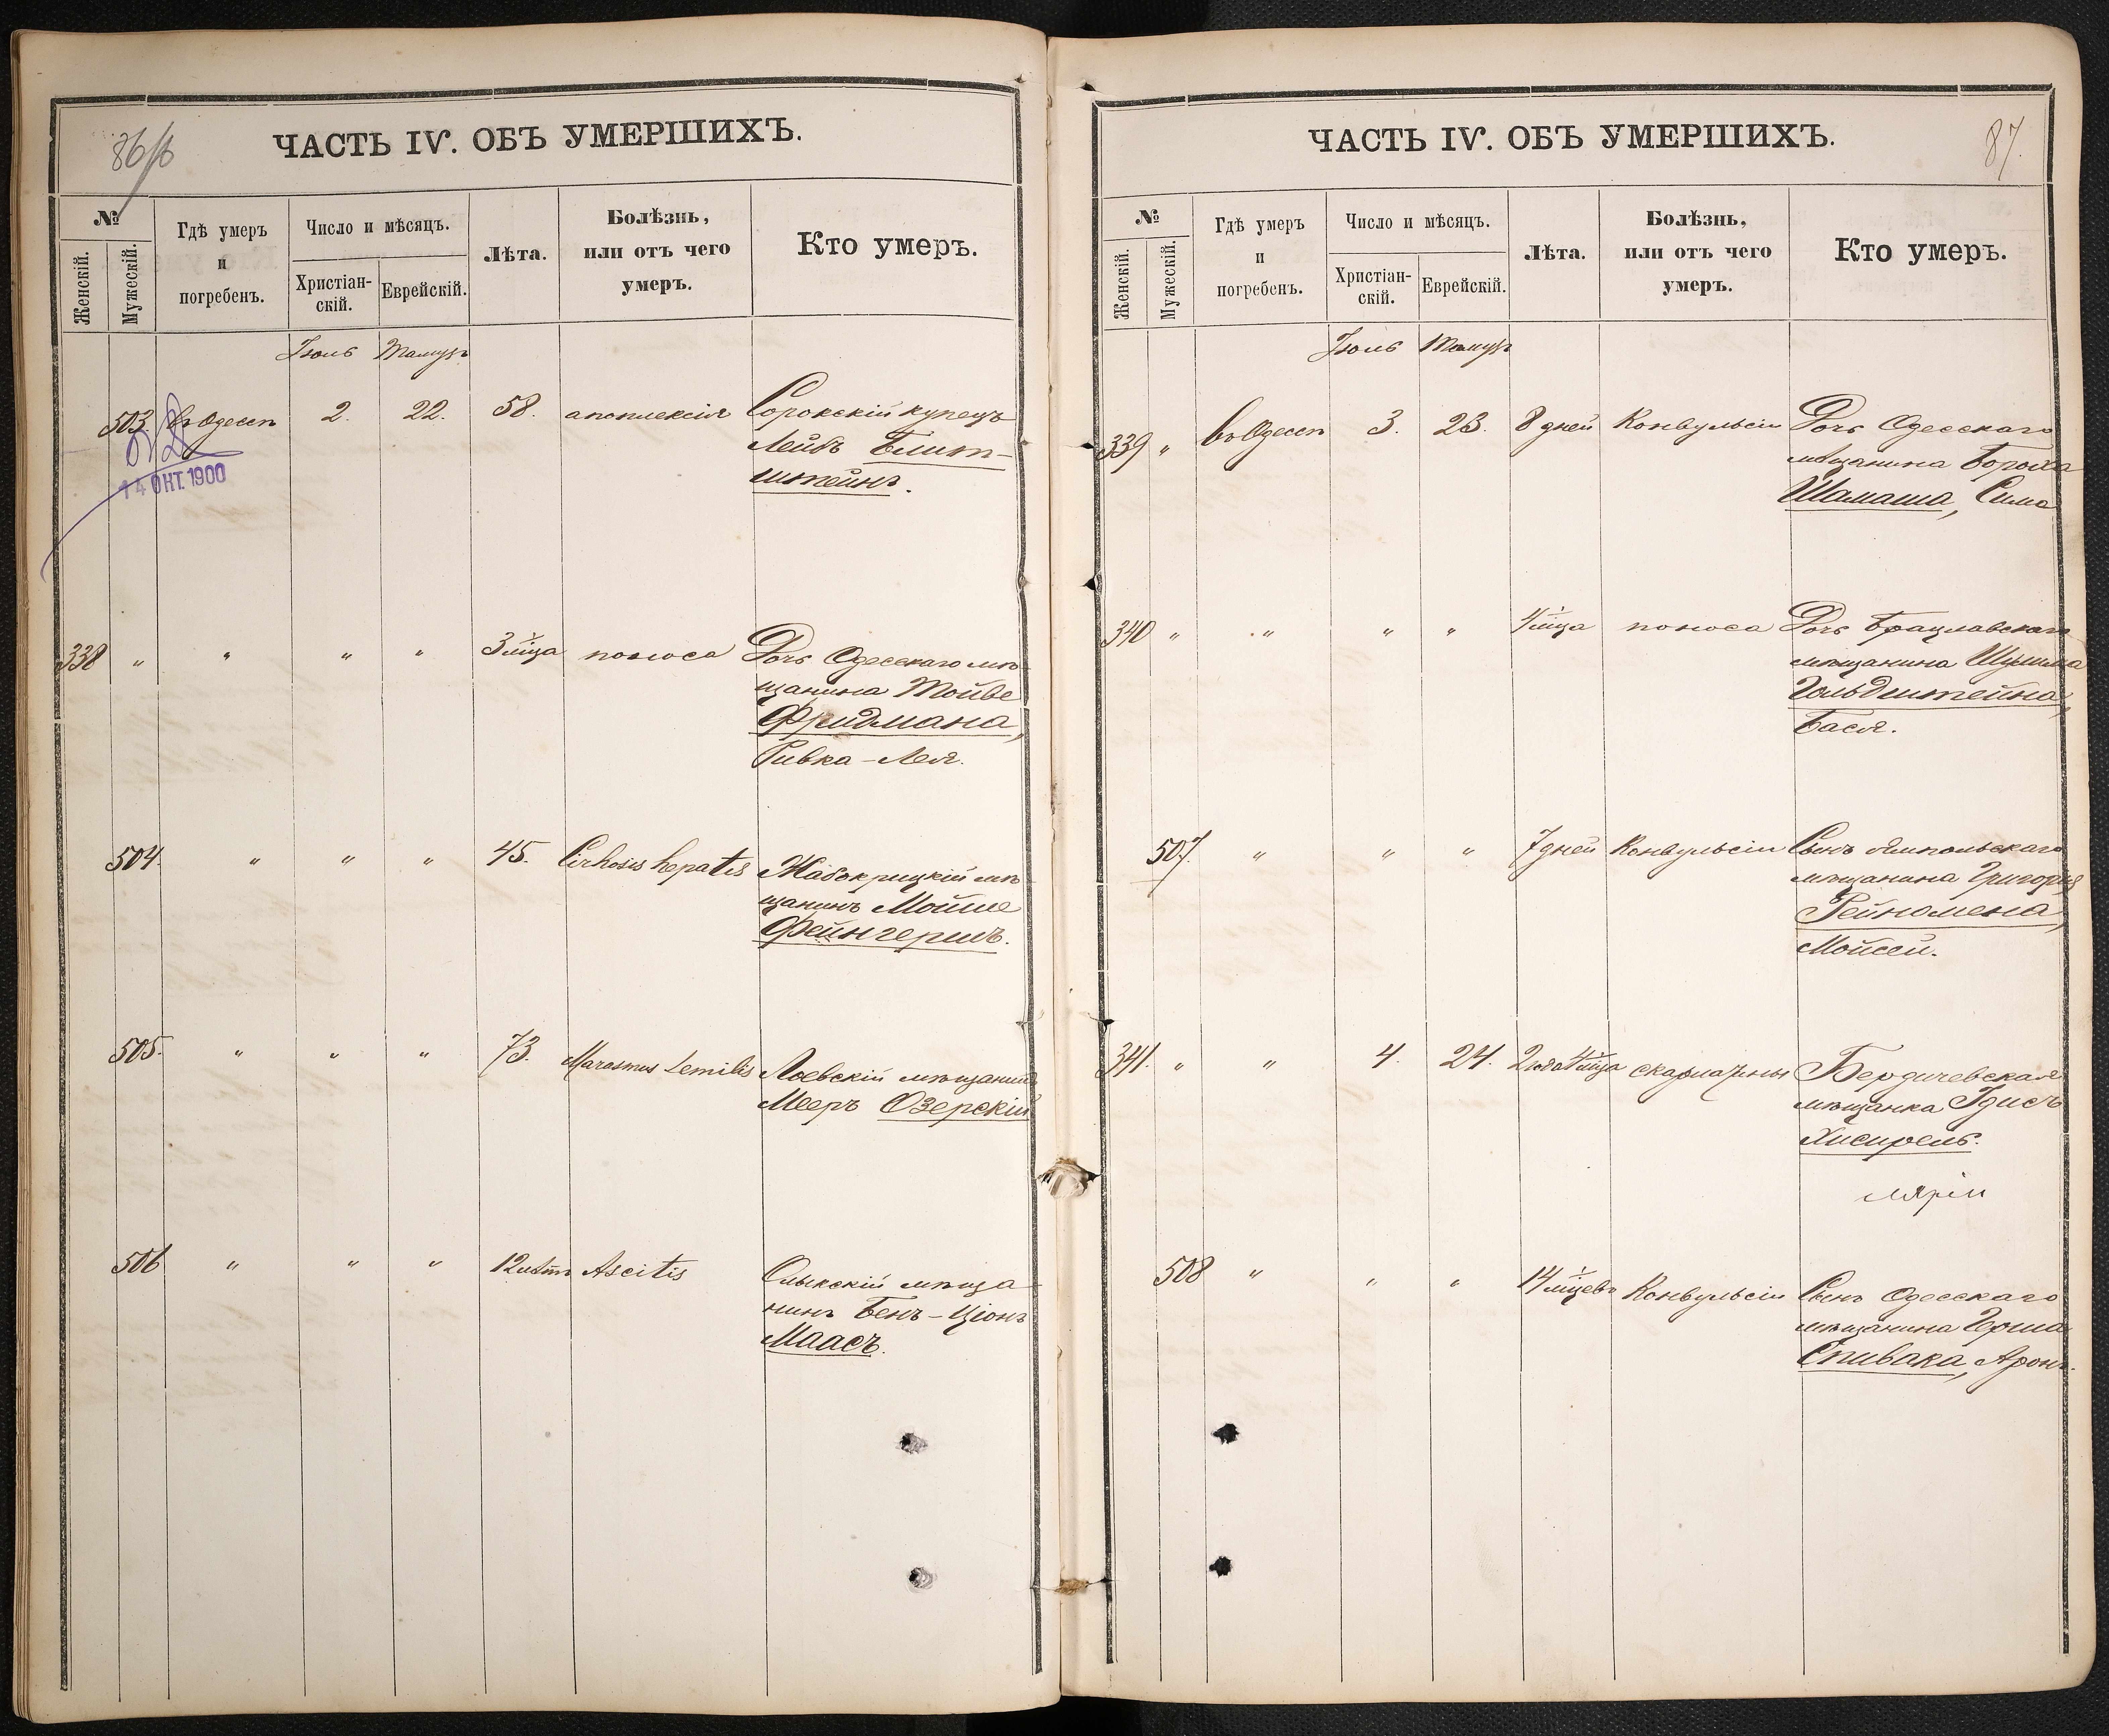 86/б
ЧАСТЬ IV. ОБЪ УМЕРШИХЪ.
№
Женскій.
Мужескій.
Гдѣ умеръ
и
погребенъ.
Число и мѣсяцъ.
Христіан-
скій.
Еврейскій.
Лѣта.
Болѣзнь,
или отъ чего
умеръ.
Кто умеръ.
Іюль Тамузъ
503 въ Одессѣ 2. 22. 58. апоплексія Сорокскій купецъ
Лейбъ Блит-
штейнъ.
14 ОКТ. 1900
338 " " " " 3 м-ца поноса Дочь Одесскаго мѣ-
щанина Тойве
Фридмана,
Ривка-Лея.
504. " " " 45. Cirhosis hepatis Жабокрицкій мѣ-
щанинъ Мойше
Фейнгершъ.
505. " " " 73. Marasmus Semilis Лоевскій мѣщанинъ
Мееръ Озерскій
506 " " " 12 лѣтъ Ascitis Олыкскій мѣща-
нинъ Бенъ-Ціонъ
Маасъ.
87.
ЧАСТЬ IV. ОБЪ УМЕРШИХЪ.
№
Женскій.
Мужескій.
Гдѣ умеръ
и
погребенъ.
Число и мѣсяцъ.
Христіан-
скій.
Еврейскій.
Лѣта.
Болѣзнь,
или отъ чего
умеръ.
Кто умеръ.
Іюль Тамузъ
339 " въ Одессѣ 3. 23. 8 дней Конвульсіи Дочь Одесскаго
мѣщанина Бороха
Шамаша, Сима
340 " " " " 4 м-ца поноса Дочь Брацлавскаго
мѣщанина
Гольдштейна,
Бася.
507. " " " 7 дней Конвульсіи Сынъ Ямпольскаго
мѣщанина Григорія
Рейномена,
Мойсей.
341. " " 4. 24. 2 года 4 м-ца скарлатины Бердичевская
мѣщанка Идисъ
508 " " " 14 м-цевъ Конвульсіи Сынъ Одесскаго
мѣщанина Герша
Спивака, Аронъ.